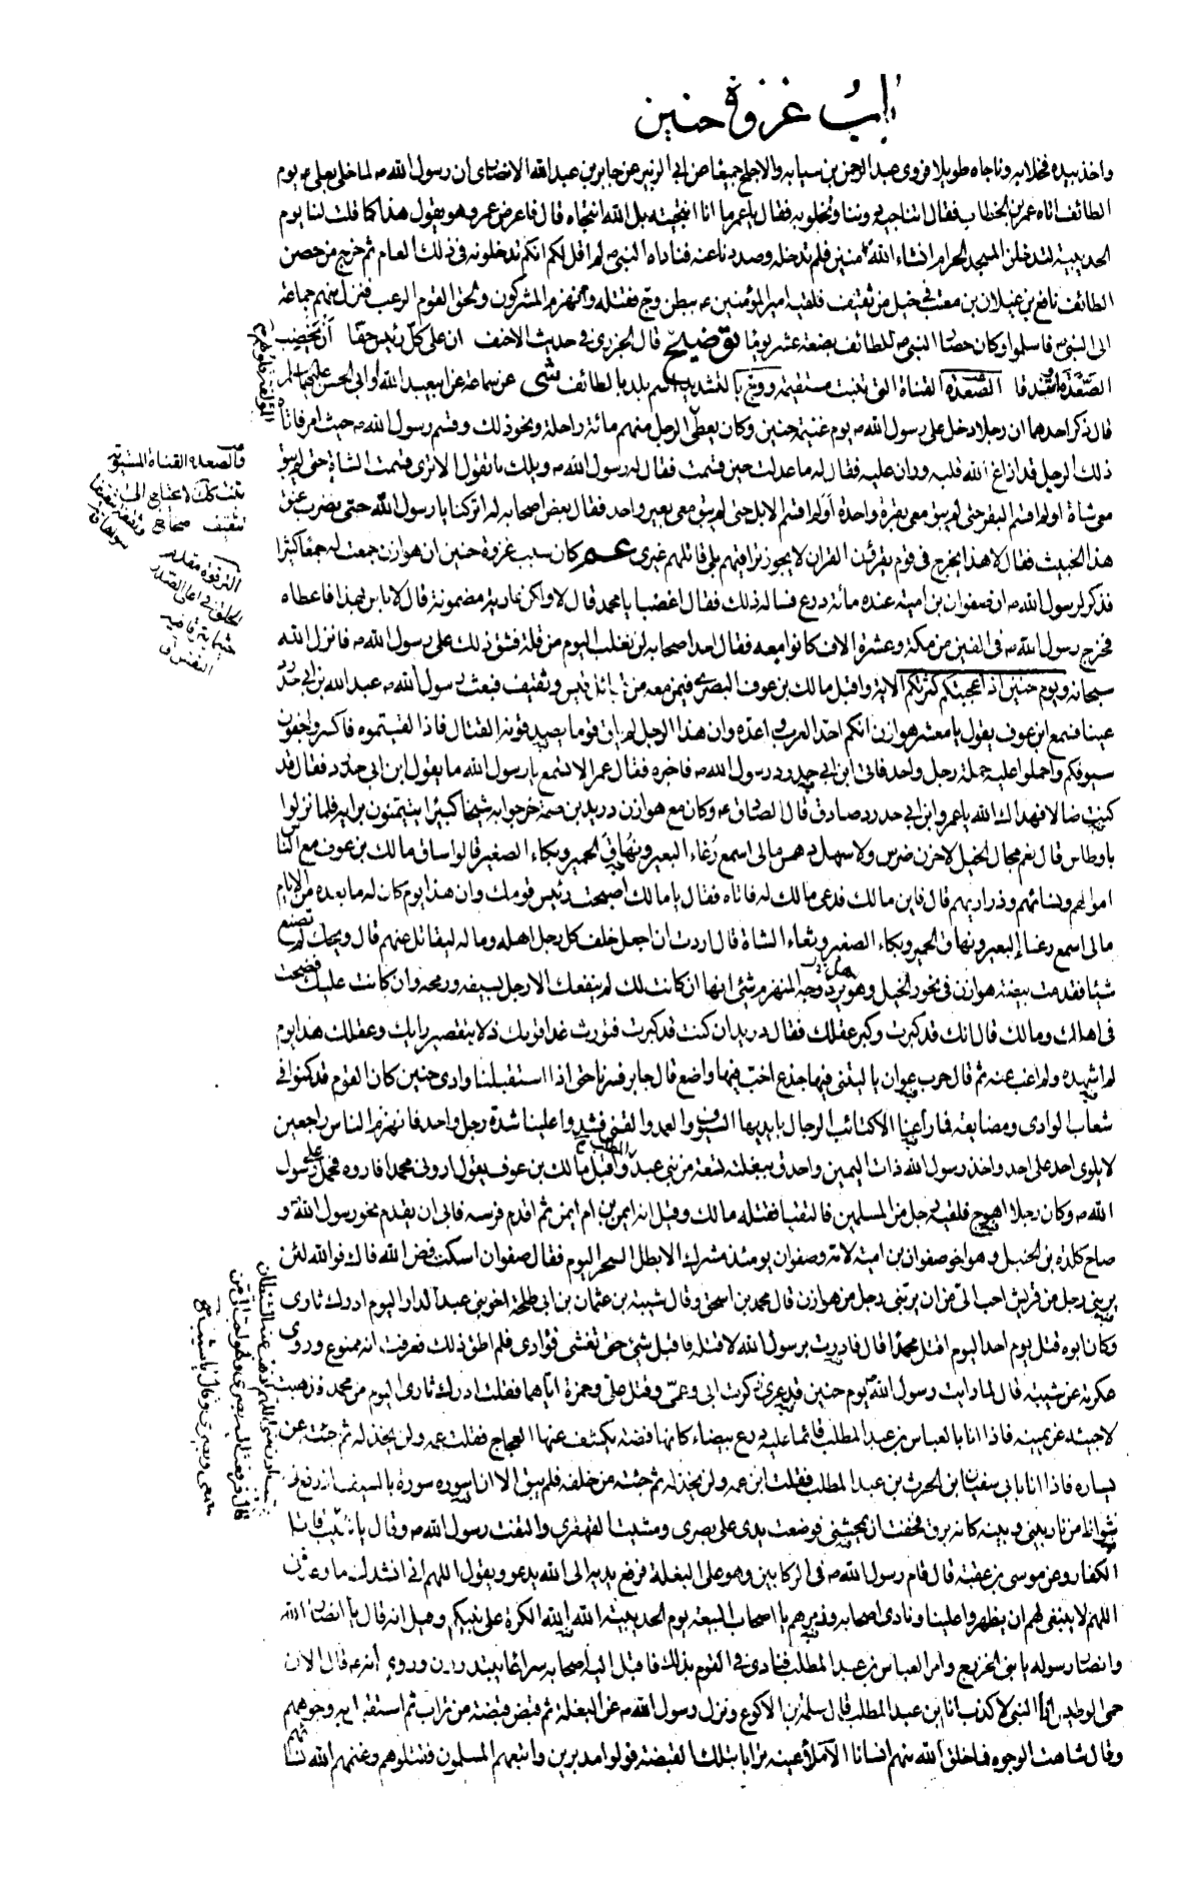 باب غزوة حنين
واخذ بيده فخلا به وناجاه طويلا فروى عبد الرحمن بن سيابه والاجلح جميعا عن ابى الزبير عن جابر بن عبد الله الانصارى ان رسول الله ص لما خلى بعلى ع يوم
الطائف اتاه عمر بن الخطاب فقال اتناجيه دوننا وتخلو به فقال يا عمر ما انا انتجيته بل الله انتجاه قال فاعرض عمر وهو يقول هذا كما قلت لنا يوم
الحديبية لتدخلن المسجد الحرام انشاء الله آمنين فلم ندخله وصددنا عنه فناداه النبى ص لم اقل لكم انكم تدخلونه فى ذلك العام ثم خرج من حصن
الطائف نافع بن غيلان بن معتب فى خيل من ثقيف فلقيه امير المؤمنين ع ببطن وج فقتله وانهزم المشركون ولحق القوم الرعب فنزل منهم جماعة
الى النبى ص فاسلموا وكان حصار النبى ص للطائف بضعة عشر يوما توضيح قال الجزرى فى حديث الاحنف ان على كل رئيس حقا أن يخضب
الصعدة او تندقا الصعدة القناة التى تنبت مستقيمة ووج بالتشديد اسم بلد بالطائف شى عن سماعة عن ابيعبد الله او ابى الحسن عليهما السلم
قال ذكر احدهما ان رجلا دخل على رسول الله ص يوم غنيمة حنين وكان يعطى الرجل منهم مائة راحلة ونحو ذلك وقسم رسول الله ص حيث امر فاتاه
ذلك الرجل قد ازاغ الله قلبه وران عليه فقال له ما عدلت حين قسمت فقال له رسول الله ص ويلك ما تقول الا ترى قسمت الشاة حتى لم يبق
معى شاة اولم اقسم البقر حتى لم يبق معى بقرة واحدة أولم اقسم الابل حتى لم يبق معى بعير واحد فقال بعض اصحابه له اتركنا يا رسول الله حتى نضرب عنق
هذا الخبيث فقال لا هذا يخرج فى قوم يقرؤن القران لا يجوز تراقيهم بلى قاتلهم غيرى عم كان سبب غزوة حنين ان هوازن جمعت له جمعا كثيرا
فذكر لرسول الله ص ان صفوان بن امية عنده مائة درع فساله ذلك فقال اغصبا يا محمد قال لا ولكن عارية مضمونة قال لا باس بهذا فاعطاه
فخرج رسول الله ص فى الفين من مكة وعشرة الاف كانوا معه فقال احد اصحابه لن نغلب اليوم من قلة فشق ذلك على رسول الله ص فانزل الله
سبحانه ويوم حنين اذ اعجبتكم كثرتكم الاية واقبل مالك بن عوف النصرى فيمن معه من قبائل قيس وثقيف فبعث رسول الله ص عبد الله بن ابى حدرد
عينا فسمع ابن عوف يقول يا معشر هوازن انكم احد العرب واعده وان هذا الرجل لم يلق قوما يصدقونه القتال فاذا لقيتموه فاكسروا جفون
سيوفكم واحملوا عليه حملة رجل واحد فاتى ابن ابى حدرد رسول الله ص فاخبره فقال عمر الا تسمع يا رسول الله ما يقول ابن ابى حدرد فقال قد
كنت ضالا فهداك الله يا عمر وابن ابى حدرد صادق قال الصادق ع وكان مع هوازن دريد بن صمة خرجوا به شيخا كبيرا يتيمنون برايه فلما نزلوا
باوطاس قال نعم مجال الخيل لا حزن ضرس ولا سهل دهس مالى اسمع رغاء البعير ونهاق الحمير وبكاء الصغير قالوا ساق مالك بن عوف مع الناس
اموالهم ونسائهم وذراريهم قال فاين مالك فدعى مالك له فاتاه فقال يا مالك اصبحت رئيس قومك وان هذا يوم كائن له ما بعده من الايام
مالى اسمع رغاء البعير ونهاق الحمير وبكاء الصغير وثغاء الشاة قال اردت ان اجعل خلف كل رجل اهله وماله ليقاتل عنهم قال ويحك لم تصنع
شيئا قدمت بيضة هوازن فى نحور الخيل وهل يرد وجه المنهزم شئ انها ان كانت لك لم ينفعك الا رجل بسيفه ورمحه وان كانت عليك فضحت
فى اهلك ومالك قال انك قد كبرت وكبر عقلك فقال دريد ان كنت قد كبرت فتورث غدا قومك ذلا بتقصير رايك وعقلك هذا يوم
لم اشهده ولم اغب عنه ثم قال حرب عوان يا ليتنى فيها جذع اخب فيها واضع قال جابر فسرنا حتى اذا استقبلنا وادى حنين كان القوم قد كمنوا فى
شعاب الوادى ومضايقه فما راعنا الا كتائب الرجال بايديها السيوف والعمد والقنى فشدوا علينا شدة رجل واحد فانهزم الناس راجعين
لا يلوى احد على احد واخذ رسول الله ذات اليمين واحدق ببغلته تسعة من بنى عبد المطلب واقبل مالك بن عوف يقول ارونى محمدا فاروه فحمل على رسول
الله ص وكان رجلا اهوج فلقيه رجل من المسلمين فالتقيا فقتله مالك وقيل انه ايمن بن ام ايمن ثم اقدم فرسه فابى ان يقدم نحو رسول الله ص و
صاح كلدة بن الحنبل وهو اخو صفوان بن امية لامه وصفوان يومئذ مشرك الا بطل السحر اليوم فقال صفوان اسكت فض الله فاك فوالله لئن
يربنى رجل من قريش احب الى من ان يربنى رجل من هوازن قال محمد بن اسحق وقال شيبة بن عثمان بن ابى طلحة اخو بنى عبد الدار اليوم ادرك ثارى
وكان ابوه قتل يوم احد اليوم اقتل محمدا قال فادرت برسول الله لاقتله فاقبل شئ حتى تغشى فؤادى فلم اطق ذلك فعرفت انه ممنوع وروى
عكرمة عن شيبة قال لما رايت رسول الله ص يوم حنين قد عرى ذكرت ابى وعمى وقتل على وحمزة اياهما فقلت ادرك ثارى اليوم من محمد فذهبت
لاجيئه عن يمينه فاذا انا بالعباس بن عبد المطلب قائما عليه درع بيضاء كانها فضة يكشف عنها العجاج فقلت عمه ولن يخذله ثم جئته عن
يساره فاذا انا بابى سفيان بن الحرث بن عبد المطلب فقلت ابن عمه ولن يخذله ثم جئته من خلفه فلم يبق الا ان اسوره سورة بالسيف اذ رفع لى
شواظ من نار بينى وبينه كانه برق فخفت ان يمحشنى فوضعت يدى على بصرى ومشيت القهقرى والتفت رسول الله ص وقال يا شيب قاتل
الكفار وعن موسى بن عقبة قال قام رسول الله ص فى الركابين وهو على البغلة فرفع يديه الى الله يدعو ويقول اللهم انى انشدك ما وعدتنى
اللهم لا ينبغى لهم ان يظهروا علينا ونادى اصحابه وذمرهم يا اصحاب البيعة يوم الحديبية الله الله الكرة على نبيكم وقيل انه قال يا انصار الله
وانصار رسوله يا بنى الخزرج وامر العباس بن عبد المطلب فنادى فى القوم بذلك فاقبل اليه اصحابه سراعا يبتدرون وروى انه ص قال الان
حمى الوطيس انا النبى لا كذب انا ابن عبد المطلب قال سلمة بن الاكوع ونزل رسول الله ص عن البغلة ثم قبض قبضة من تراب ثم استقبل به وجوههم
وقال شاهت الوجوه فما خلق الله منهم انسانا الا ملأ عينه ترابا بتلك القبضة فولوا مدبرين واتبعهم المسلمون فقتلوهم وغنمهم الله نساءهم
المؤلفة قلوبهم
الصعدة القناة المستوية
تنبت كذلك لا تحتاج الى
تثقيف صحاح
الترقوة مقدم
الحلق فى اعلى الصدر
حيثما يترقى فيه
النفس ق
يا شيب ادن منى اللهم اذهب عنه الشيطان
قال فرفعت اليه بصرى ولهو احب الى من
سمعى وبصرى وقال يا شيب